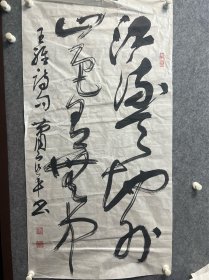 江流天地外
山色有无中
王维诗句